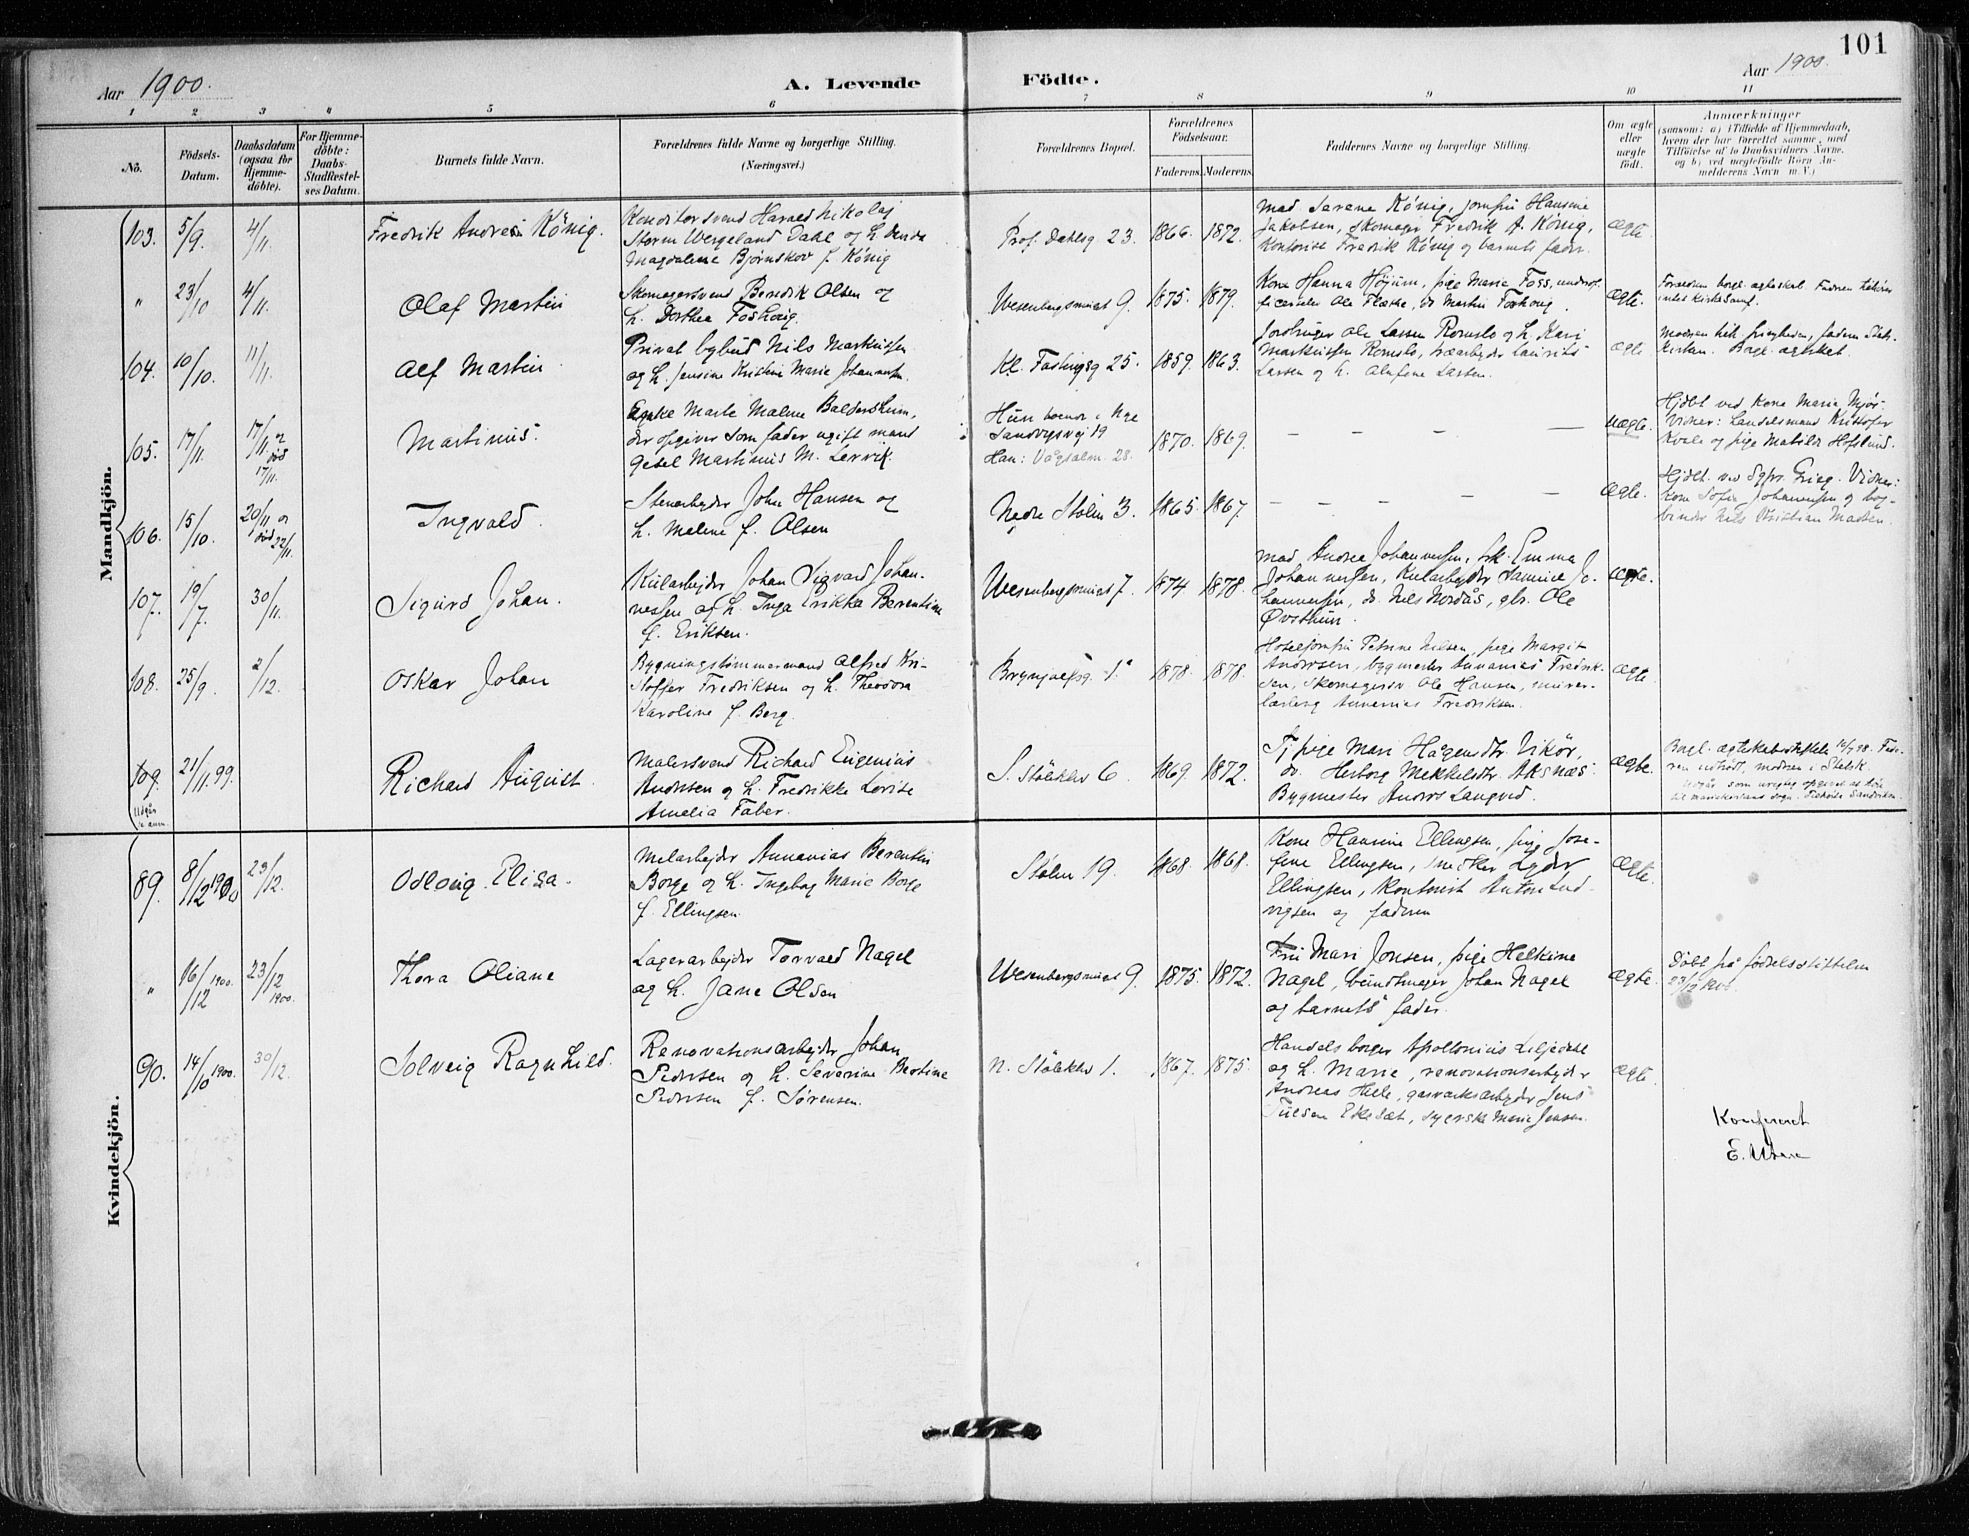 101
Aar 1900.
A. Levende Födte.
Aar 1900.
1 2 3 4 5 6 7 8 9 10 11
No.
Födsels-
Datum.
Daabsdatum
(ogsaa for
Hjemme-
döbte).
For Hjemme-
döbte:
Daabs-
Stadfæstel-
ses Datum.
Barnets fulde Navn.
Forældrenes fulde Navne og borgerlige Stilling.
(Næringsvei.)
Forældrenes Bopæl.
Forældrenes
Födselsaar.
Faderens. Moderens.
Faddernes Navne og borgerlige Stilling.
Om ægte
eller
uægte
födt.
Anmærkninger
(saasom: a) i Tilfælde af Hjemmedaab,
hvem der har forrettet samme, med
Tilföielse af to Daabsvidners Navne,
og b) ved uægtefödte Börn An-
melderens Navn m. V.)
Mandkjön.
103. 5/9. 4/11. Fredrik Andreas König.
Konditorsvend Harald Nikolaj
Storm Wergeland Dahl og h.
Magdalene Bjørnskov f. König
Prof. Dahlsg 23. 1866. 1872.
Mad Serene König, jomfru Hansine
Jakobsen, Skomager Fredrik A. König,
Kontorist Fredrik König og barnets fader.
Ægte.
" 23/10 4/11. Olaf Martin
Skomagersvend Benedik Olsen og
h. Dorthea Foshaug.
Wesenbergsmuat 9. 1875. 1879.
Kone Hanna Højum, pige Marie Foss, underof-
ficer Ole Flatke, do Martin Foshaug.
Ægte.
104. 10/10. 11/11. Alf Martin
Privat bybud Nils Markussen
og h. Jensine Kristine Marie Johannesen.
Kl. Fastingsg 25. 1859. 1863.
Jordbruger Ole Lassen Romslo og h. Kari
Markussen Romslo, træarbejder Laurits
Larsen og h. Olufine Larsen.
Ægte
105. 17/11. 17/11 død 17/11. Martinus.
Enke Marte Malene Baldersheim,
der opgiver som fader ugift mand
Gabel Martinus M. Lervik.
Hun boende i Nye
Sandvigsvej 19
Han: Vågsalm. 28.
1870. 1869.
— — — —
Uægte.
Hjdbt ved Kone Maria Mjør-
Vidner: Landelsmand Kristofer
Kvale og pige Matilde Hofslund.
106. 15/10. 20/11 og død 22/11. Ingvald.
Stenarbejder John Hansen og
h. Malene f. Olsen
Nedre Stølen 3. 1865. 1867.
— — — — —
Ægte.
Hjdbt. ved Sgpr. Grieg. Vidner:
Kone Sofie Johannesen og bog-
binder Nils Kristian Madsen.
107. 19/7. 30/11. Sigurd Johan.
Kularbejder Johan Sigvard Johan-
nessen og h. Inga Erikka Berentine
f. Eriksen.
Wesenbergsmuat 7. 1874 1878.
Mad. Andrea Johannessen, frk. Emma
Johannessen, Kularbejder Laurits Jo-
hannessen, do. Nils Nordås, gbr. Ole
Øvsthun.
Ægte.
108. 25/9. 2/12. Oskar Johan
Bygningstømmermand Alfred Kri-
stoffer Fredriksen og h. Theodora
Karoline f. Berg.
Brynjulfsg. 1a 1878. 1878.
Hoteljomfru Petrine Nilsen, pige Margit
Andersen, bygmester Ananias Fredrik-
sen, Skomagersv Ole Hansen, murer-
lærling Annanias Fredriksen.
Ægte.
109. 21/11.99. Richard August.
Udgår
Malersvend Richard Eugenius
Andersen og h. Fredrikke Lovise
Amelia Faber.
S. Stølekleiv 6 1869. 1872.
Tj pige Mari Hågensdtr Vikör,
do. Herborg Mekkelsdtr. Aksnæs.
Bygmester Anders Langved.
Ægte.
Kvindekjön.
89. 8/12 1900 23/12. Odlaug Eliza.
Melarbejder Annanias Berentin
Borge og h. Ingeborg Marie Borge
f. Ellingsen.
Stølen 19. 1868. 1868.
Kone Hansine Ellingsen, pige Jose-
fine Ellingsen, snekker Lyder
Ellingsen, Kontorist Anton Lud-
vigsen og faderen
Ægte.
" 16/12 1900. 23/12 1900. Thora Oliane
Lagerarbejder Torvald Nagel
og h. Jane Olsen
Wesenbergsmuat 9. 1875. 1872.
Fru Mari Jonsen, pige Helkine
Nagel, bundtmager Johan Nagel
og barnets fader.
Ægte.
Døbt på fødselsstiftelsen
23/12 1900.
90. 14/10 1900. 30/12. Solveig Ragnhild.
Renovationsarbejder Johan
Pedersen og h. Severine Bertine
Pedersen f. Sørensen.
N. Stølekleiv 1. 1867. 1875.
Handelsborger Apollonius Liljedahl
og h. Marie, renovationsarbejder
Andreas Helle, gasværksarbejder Jens
Eikesæt, syerske Marie Jensen.
Ægte.
Konfereret
E.